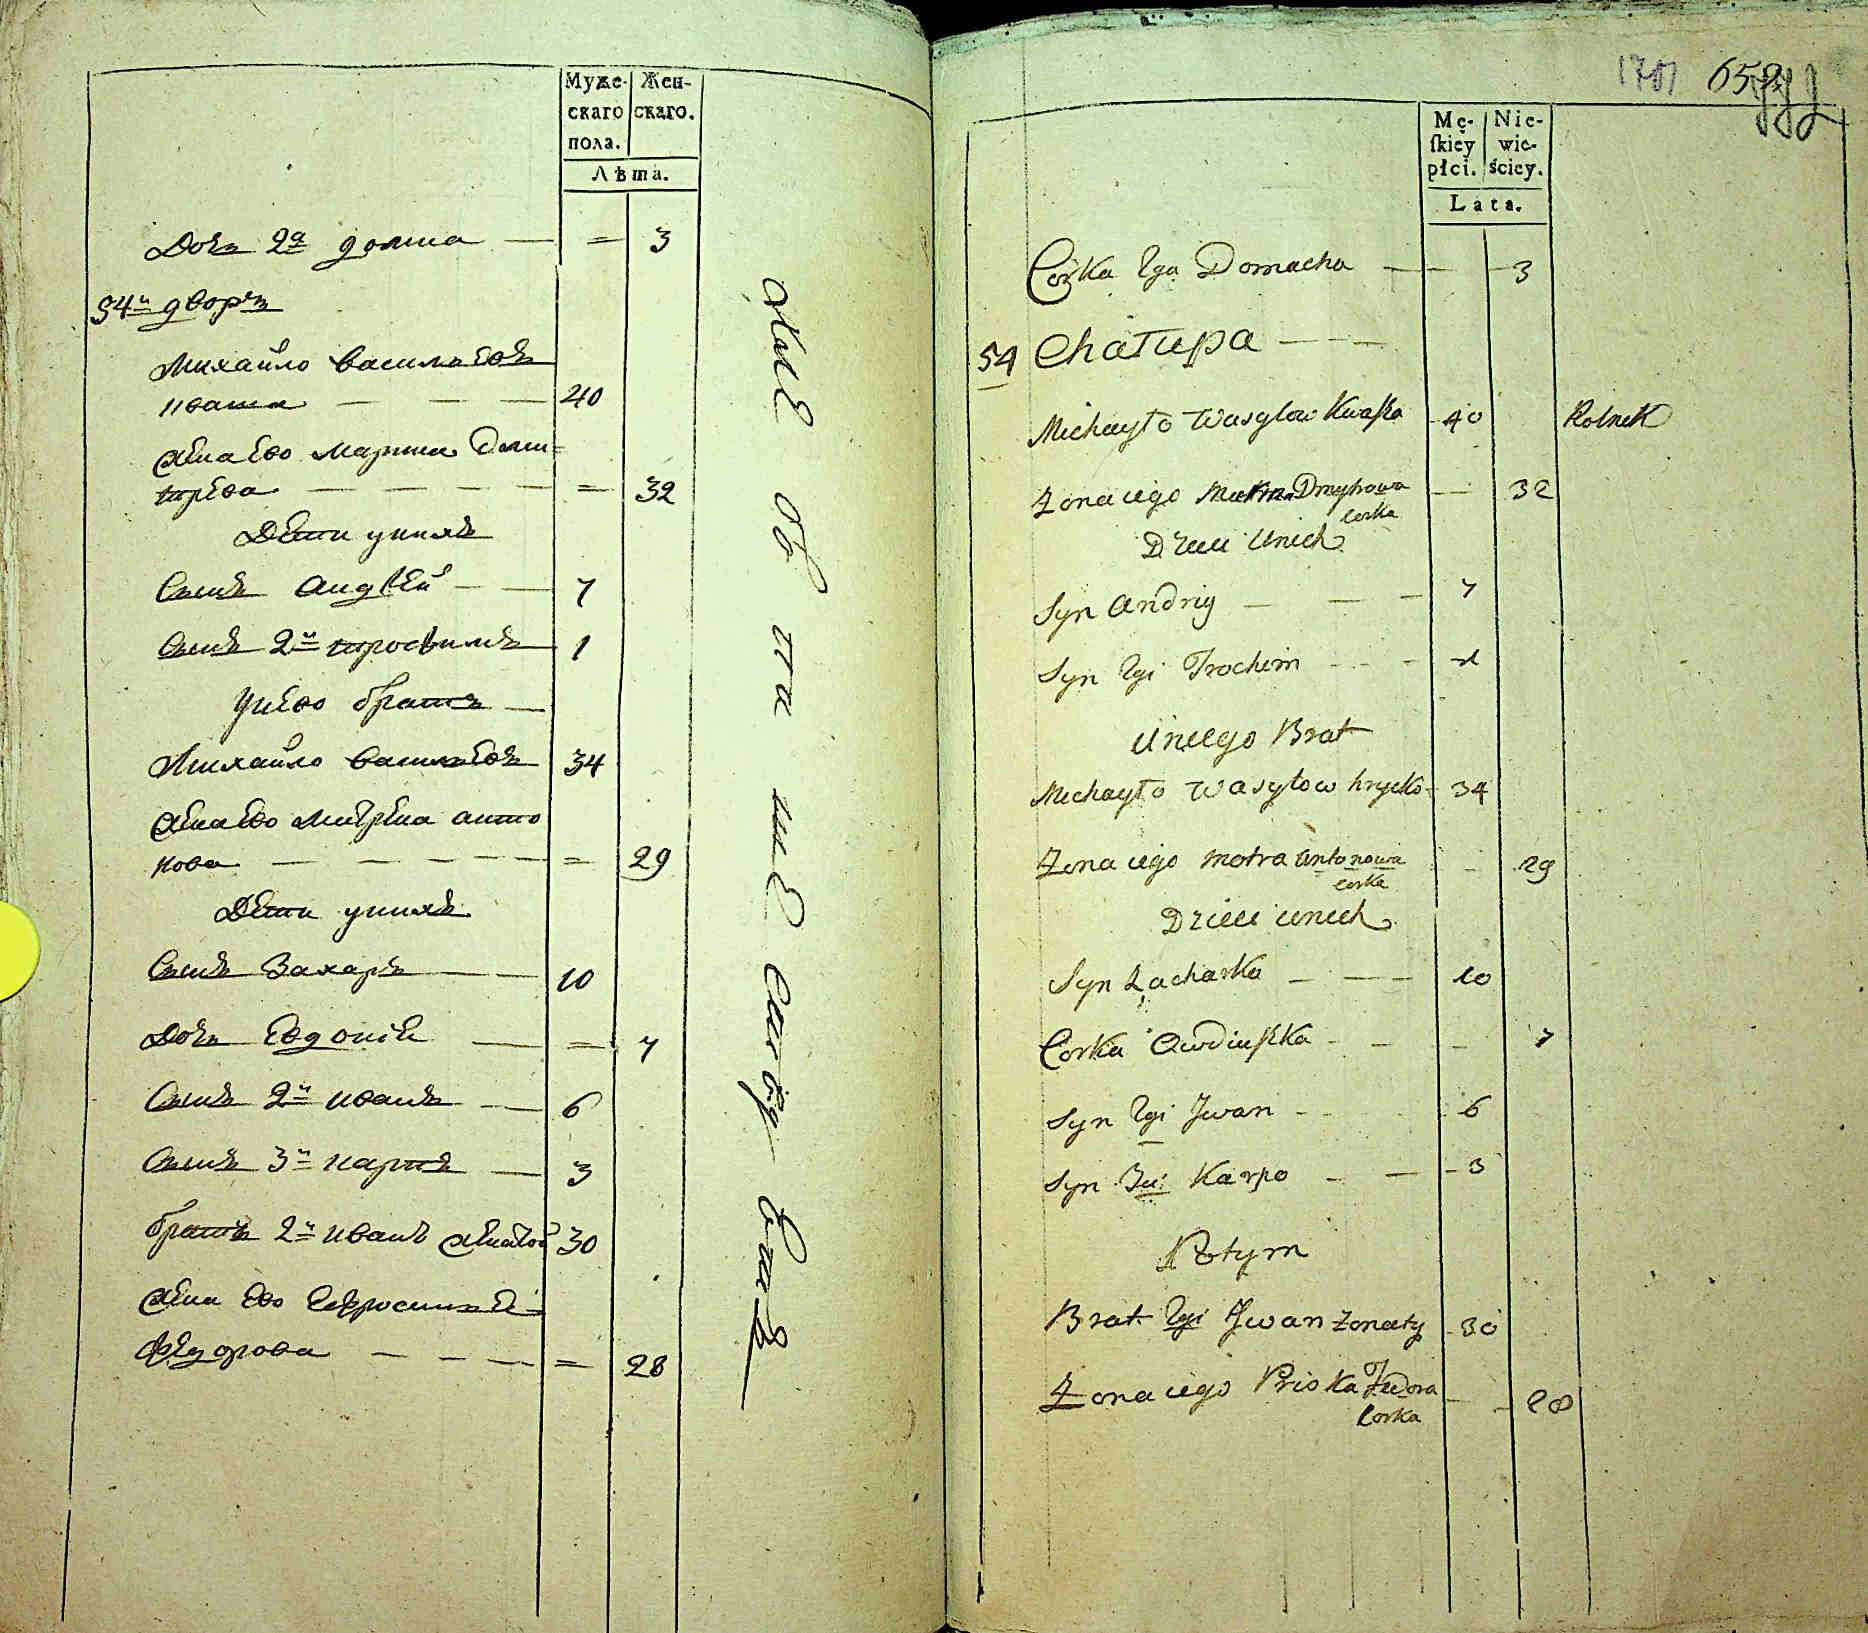 Муже-
скаго
пола.
Жен-
скаго.
Лѣта.
Дочь 2я домна — = 3
54й дворъ
Михайло васильевъ
иваша — — — 40
жена ево Марина Дми=
трева — — — — = 32
Дети унихъ
Сынъ андрей — — 7
Сынъ 2й трофимъ 1
Унево братъ —
Михайло васильевъ 34
жена ево Матрена анто
нова — — — — = 29
Дети унихъ
Сынъ Захаръ — — 10
Дочь Евдокия — = 7
Сынъ 2й иванъ — 6
Сынъ 3й карпъ — 3
братъ 2й иванъ женатой 30
жена ево Ефросинья
федорова — — — = 28
1701 652
Mę-
ſkiey
płci.
Nie-
wie-
ściey.
Lata.
Corka 2ga Domacha — — 3
54 Chałupa — — —
Michayło Wasylow Kwaſza 40 Rolnik
Żona iego Dmytrowa — 32
corka
Dzieci Unich
Syn Andriy — — — 7
Syn 2gi Trochim — — — 1
Uniego Brat
Michayło Wasylow hrycko- 34
Żona iego Motra Antonowa - - 29
corka
Dzieci unich
Syn Zacharko — — — 10
Corka Awdiuſzka - - - 7
Syn 2gi Iwan - - 6
Syn 3ci Karpo - — - 3
Potym
Brat 2gi Iwan żonaty 30
Żona iego Priska Fedora - - 28
Corka